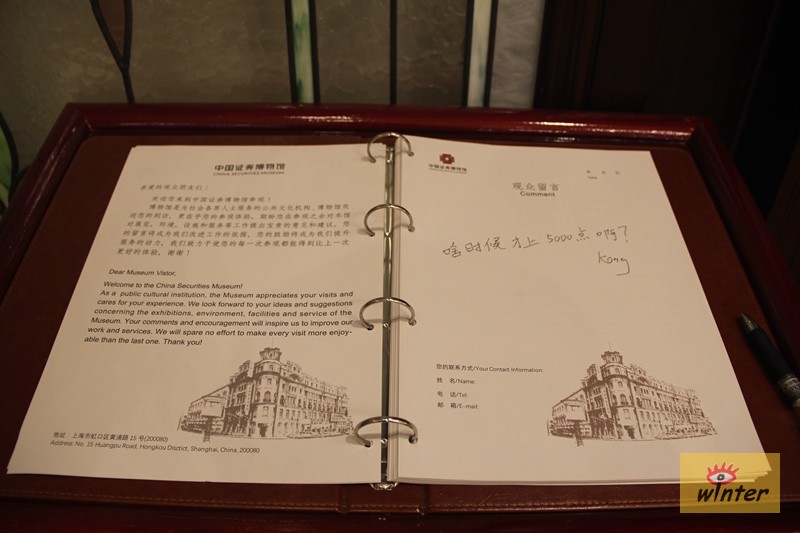 中国证券博物馆
CHINA SECURITIES MUSEUM
亲爱的观众朋友们：
欢迎您来到中国证券博物馆参观！
博物馆是为社会各界人士服务的公共文化机构，博物馆欢
迎您的到访，更在乎您的参观体验，期盼您在参观之余对本馆
对展览、环境、设施和服务等工作提出宝贵的意见和建议。您
的留言将成为我们改进工作的依据，您的鼓励将成为我们提升
服务的动力，我们致力于使您的每一次参观都能得到比上一次
更好的体验。谢谢！
Dear Museum Vistor,
Welcome to the China Securities Museum!
As a public cultural institution, the Museum appreciates your visits and
cares for your experience. We look forward to your ideas and suggestions
concerning the exhibitions, environment, facilities and service of the
Museum. Your comments and encouragement will inspire us to improve our
work and services. We will spare no effort to make every visit more enjoy-
able than the last one. Thank you!
地址：上海市虹口区黄浦路 15 号(200080)
Address: No. 15 Huangpu Road, Hongkou Disztict, Shanghai, China, 200080
中国证券博物馆
观众留言
Comment
啥时候才上 5000点啊？
Kong
您的联系方式/Your Contact Information:
姓 名/Name:
电 话/Tel:
邮 箱/E-mail:
winter